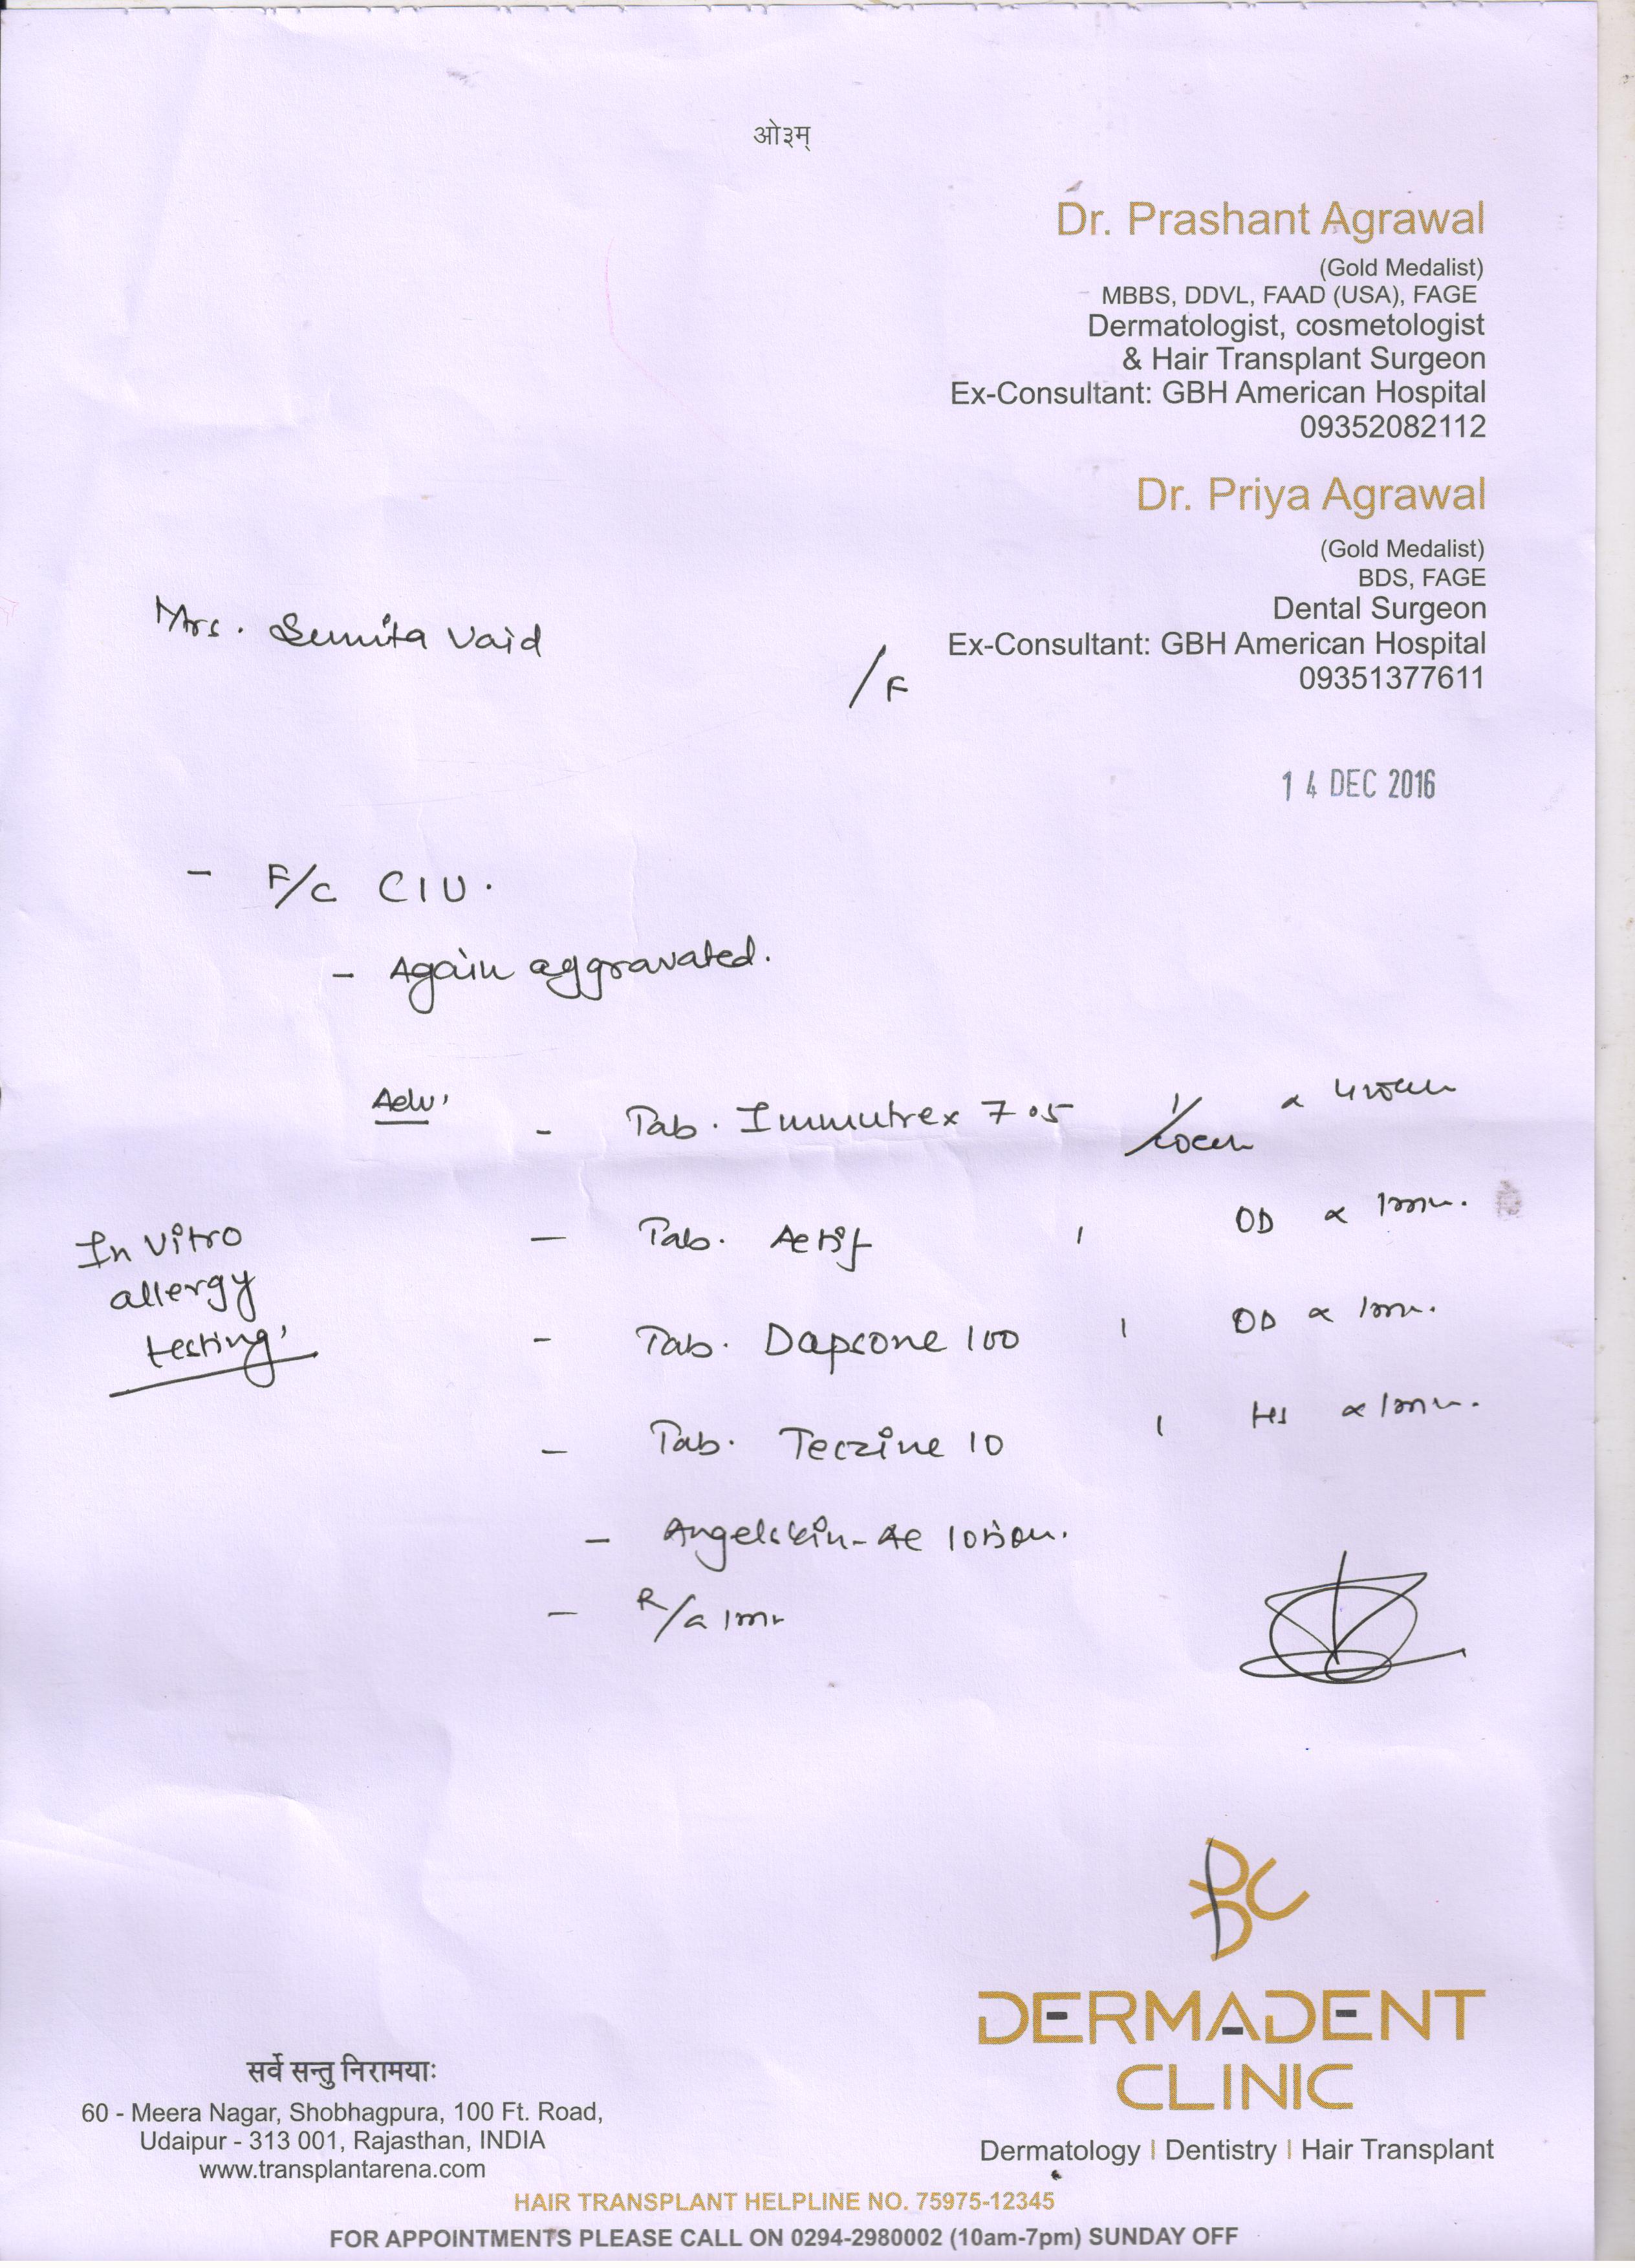 ओ३म्
Dr. Prashant Agrawal
(Gold Medalist)
MBBS, DDVL, FAAD (USA), FAGE
Dermatologist, cosmetologist
& Hair Transplant Surgeon
Ex-Consultant: GBH American Hospital
09352082112
Dr. Priya Agrawal
(Gold Medalist)
BDS, FAGE
Dental Surgeon
Ex-Consultant: GBH American Hospital
09351377611
Mrs. Sunita Vaid
/F
14 DEC 2016
- F/c CIU.
- Again aggravated.
Adv.
- Tab. Immutrex 7.5 1/week x 4 week
- Tab. 1 OD x 1
- Tab. Dapsone 100 1 OD x 1
- Tab. Teczine 10 1 HS x 1
- Angelskin- lotion.
- R/a 1
In vitro
allergy
testing
DERMADENT
CLINIC
Dermatology | Dentistry | Hair Transplant
सर्वे सन्तु निरामयाः
60 - Meera Nagar, Shobhagpura, 100 Ft. Road,
Udaipur - 313 001, Rajasthan, INDIA
www.transplantarena.com
HAIR TRANSPLANT HELPLINE NO. 75975-12345
FOR APPOINTMENTS PLEASE CALL ON 0294-2980002 (10am-7pm) SUNDAY OFF